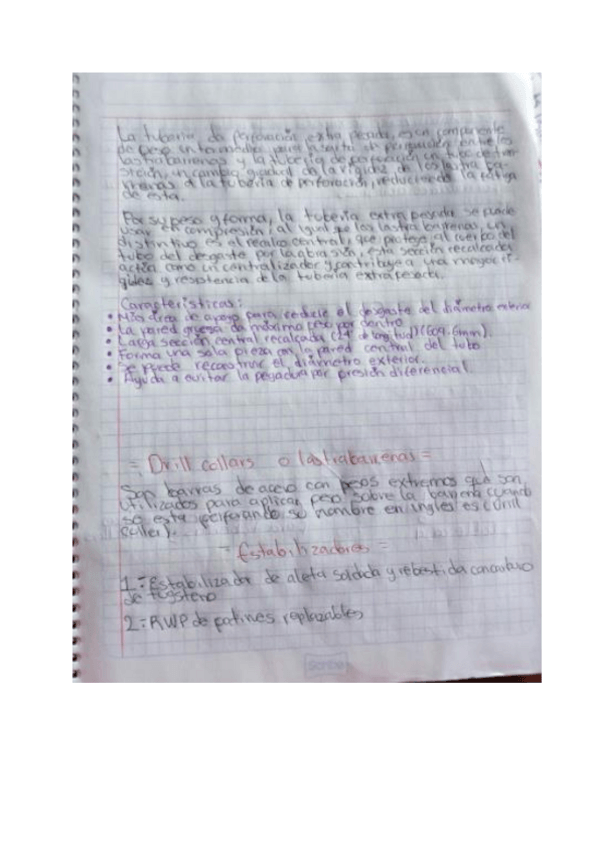 La tubería de perforación extra pesada, es un componente
de peso intermedio, para la sarta de perforación entre los
lastrabarrenas y la tubería de perforación, un tubo de tran
sición, un cambio gradual de la rigidez de los lastra ba-
rrenas a la tubería de perforación, reduciendo la fatiga
de esta.
Por su peso y forma, la tubería extra pesada se puede
usar en compresión, al igual que los lastra barrenas, un
distintivo es el realce central, que protege al cuerpo del
tubo del desgaste por la abrasión, esta sección recalcada
actúa como un centralizador y contribuye a una mayor ri-
gidez y resistencia de la tubería extrapesada.
Características:
• Más área de apoyo para reducir el desgaste del diámetro exterior
• La pared gruesa da máximo peso por dentro
• Larga sección central recalcada (24" de longitud) (609.6mm).
• Forma una sola pieza con la pared central del tubo.
• Se puede reconstruir el diámetro exterior.
• Ayuda a evitar la pegadura por presión diferencial
= Drill collars o lastrabarrenas =
Son barras de acero con pesos extremos que son
utilizados para aplicar peso sobre la barrena cuando
se esta perforando su nombre en ingles es (Drill
coller).
= Estabilizadores =
1= Estabilizador de aleta soldada y rebestida con carburo
de tugsteno
2= RWP de patines replazables
Scribe